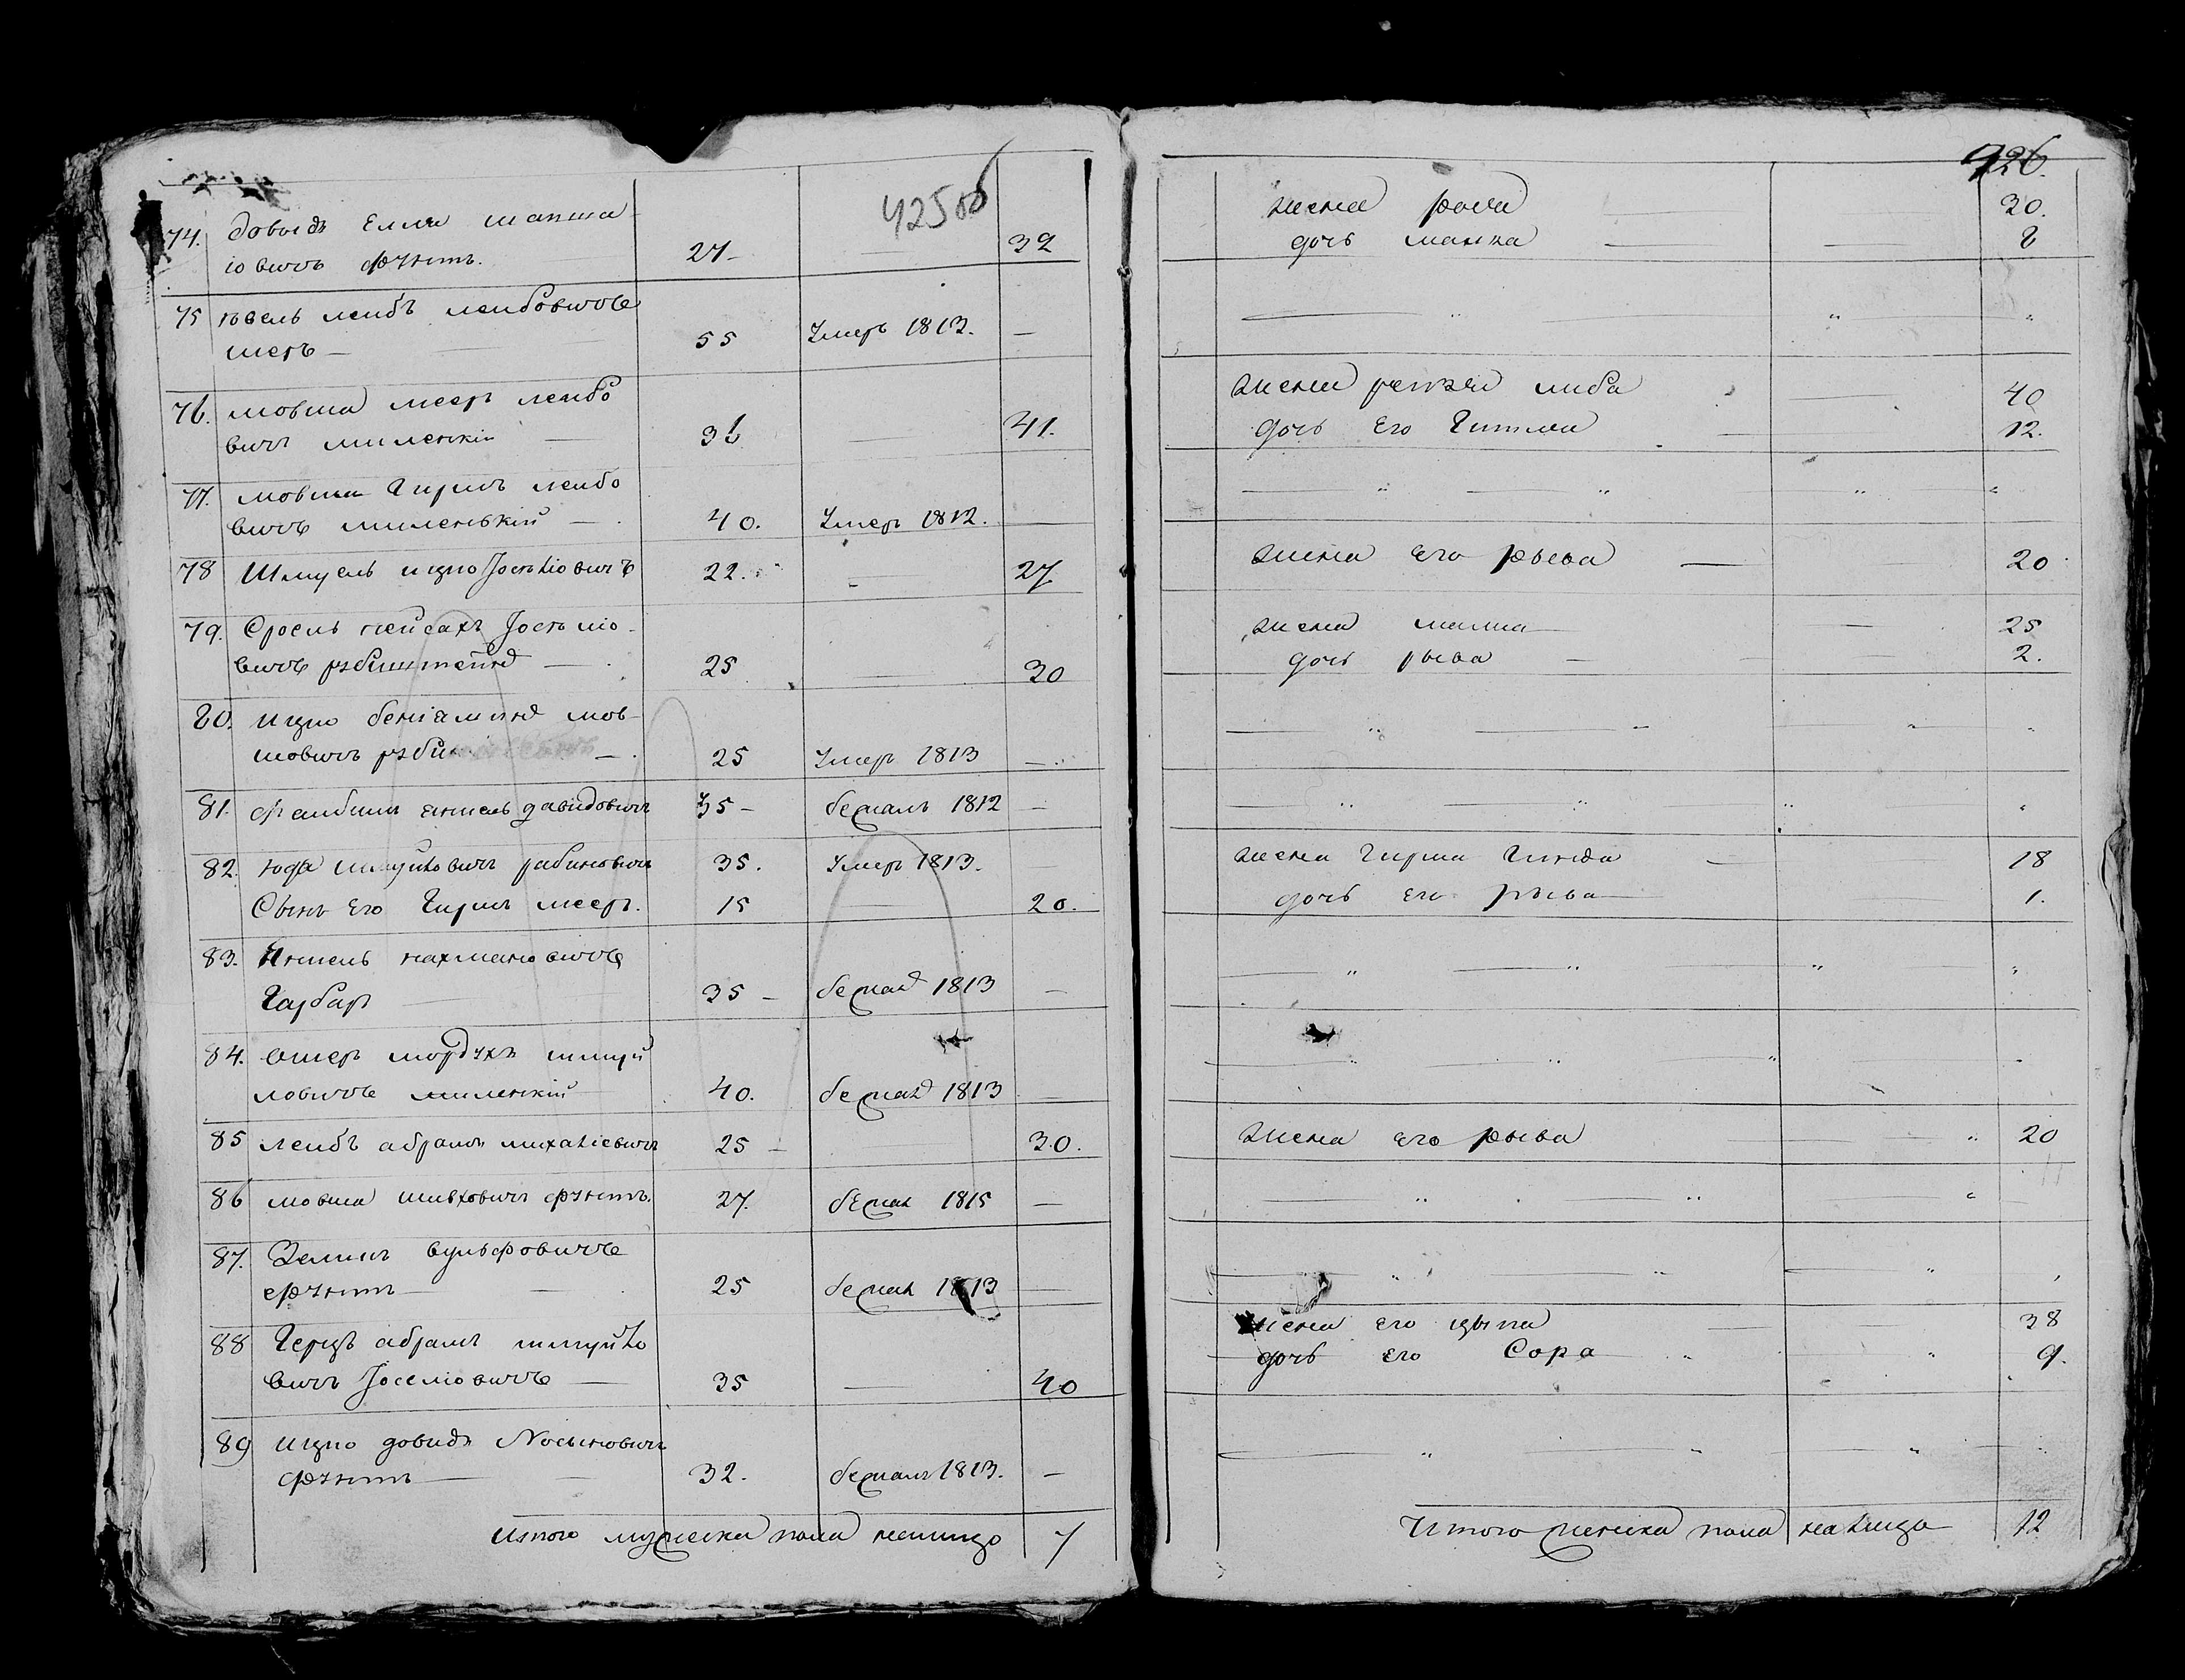 425об
74. довыдъ Елли шапша
іовичъ фунтъ. 27 — 32
75 іовель лейбъ лейбовичъ
55 Умеръ 1813. —
76. мовша меер лейбо
вичъ миленкій — 36 — 41.
77. мовша Гиршъ лейбо
вичъ миленькій — 40. Умеръ 1812. —
78 Шмуель ицко 22. — 27
79. Сроель пейсахъ
вичъ рубинштейнъ — 25 — 30
80. ицко беніаминъ мов
шовичъ 25 Умеръ 1813 —
81. давидовичъ 35 — бежалъ 1812 —
82. юда шмуйловичъ рабиновичъ 35. Умеръ 1813.
Сынъ Его Гиршъ мееръ. 15 — 20.
83. нахмановичъ
Гарбаръ 35 — бежал 1813 —
84. мордухъ шмуй
ловичъ миленкій 40. бежал 1813 —
85 лейбъ абрамъ михаліевичъ 25 — 30.
86 мовша фунтъ. 27. бежал 1815 —
87. Зелигъ вульфовичъ
фунтъ — 25 бежал 1813 —
88 Герцъ абрамъ шмуйло
вичъ Іоселіовичъ — 35 — 40
89 ицко довидъ Носыновичъ
фунтъ — 32. бежалъ 1813. —
Итого мужеска пола налицо 7
926.
жена 30.
дочь манка — 8
жена либа — 40
дочь Его Гитля — 12.
жена его рыва — 20
жена малка — 25
дочь рыва — 2.
жена Гирша Гинда — 18
дочь его рыва — 1.
жена его рыва — 20
жена его цыпа — 38
дочь его Сора 9.
Итого женска пола налицо 12